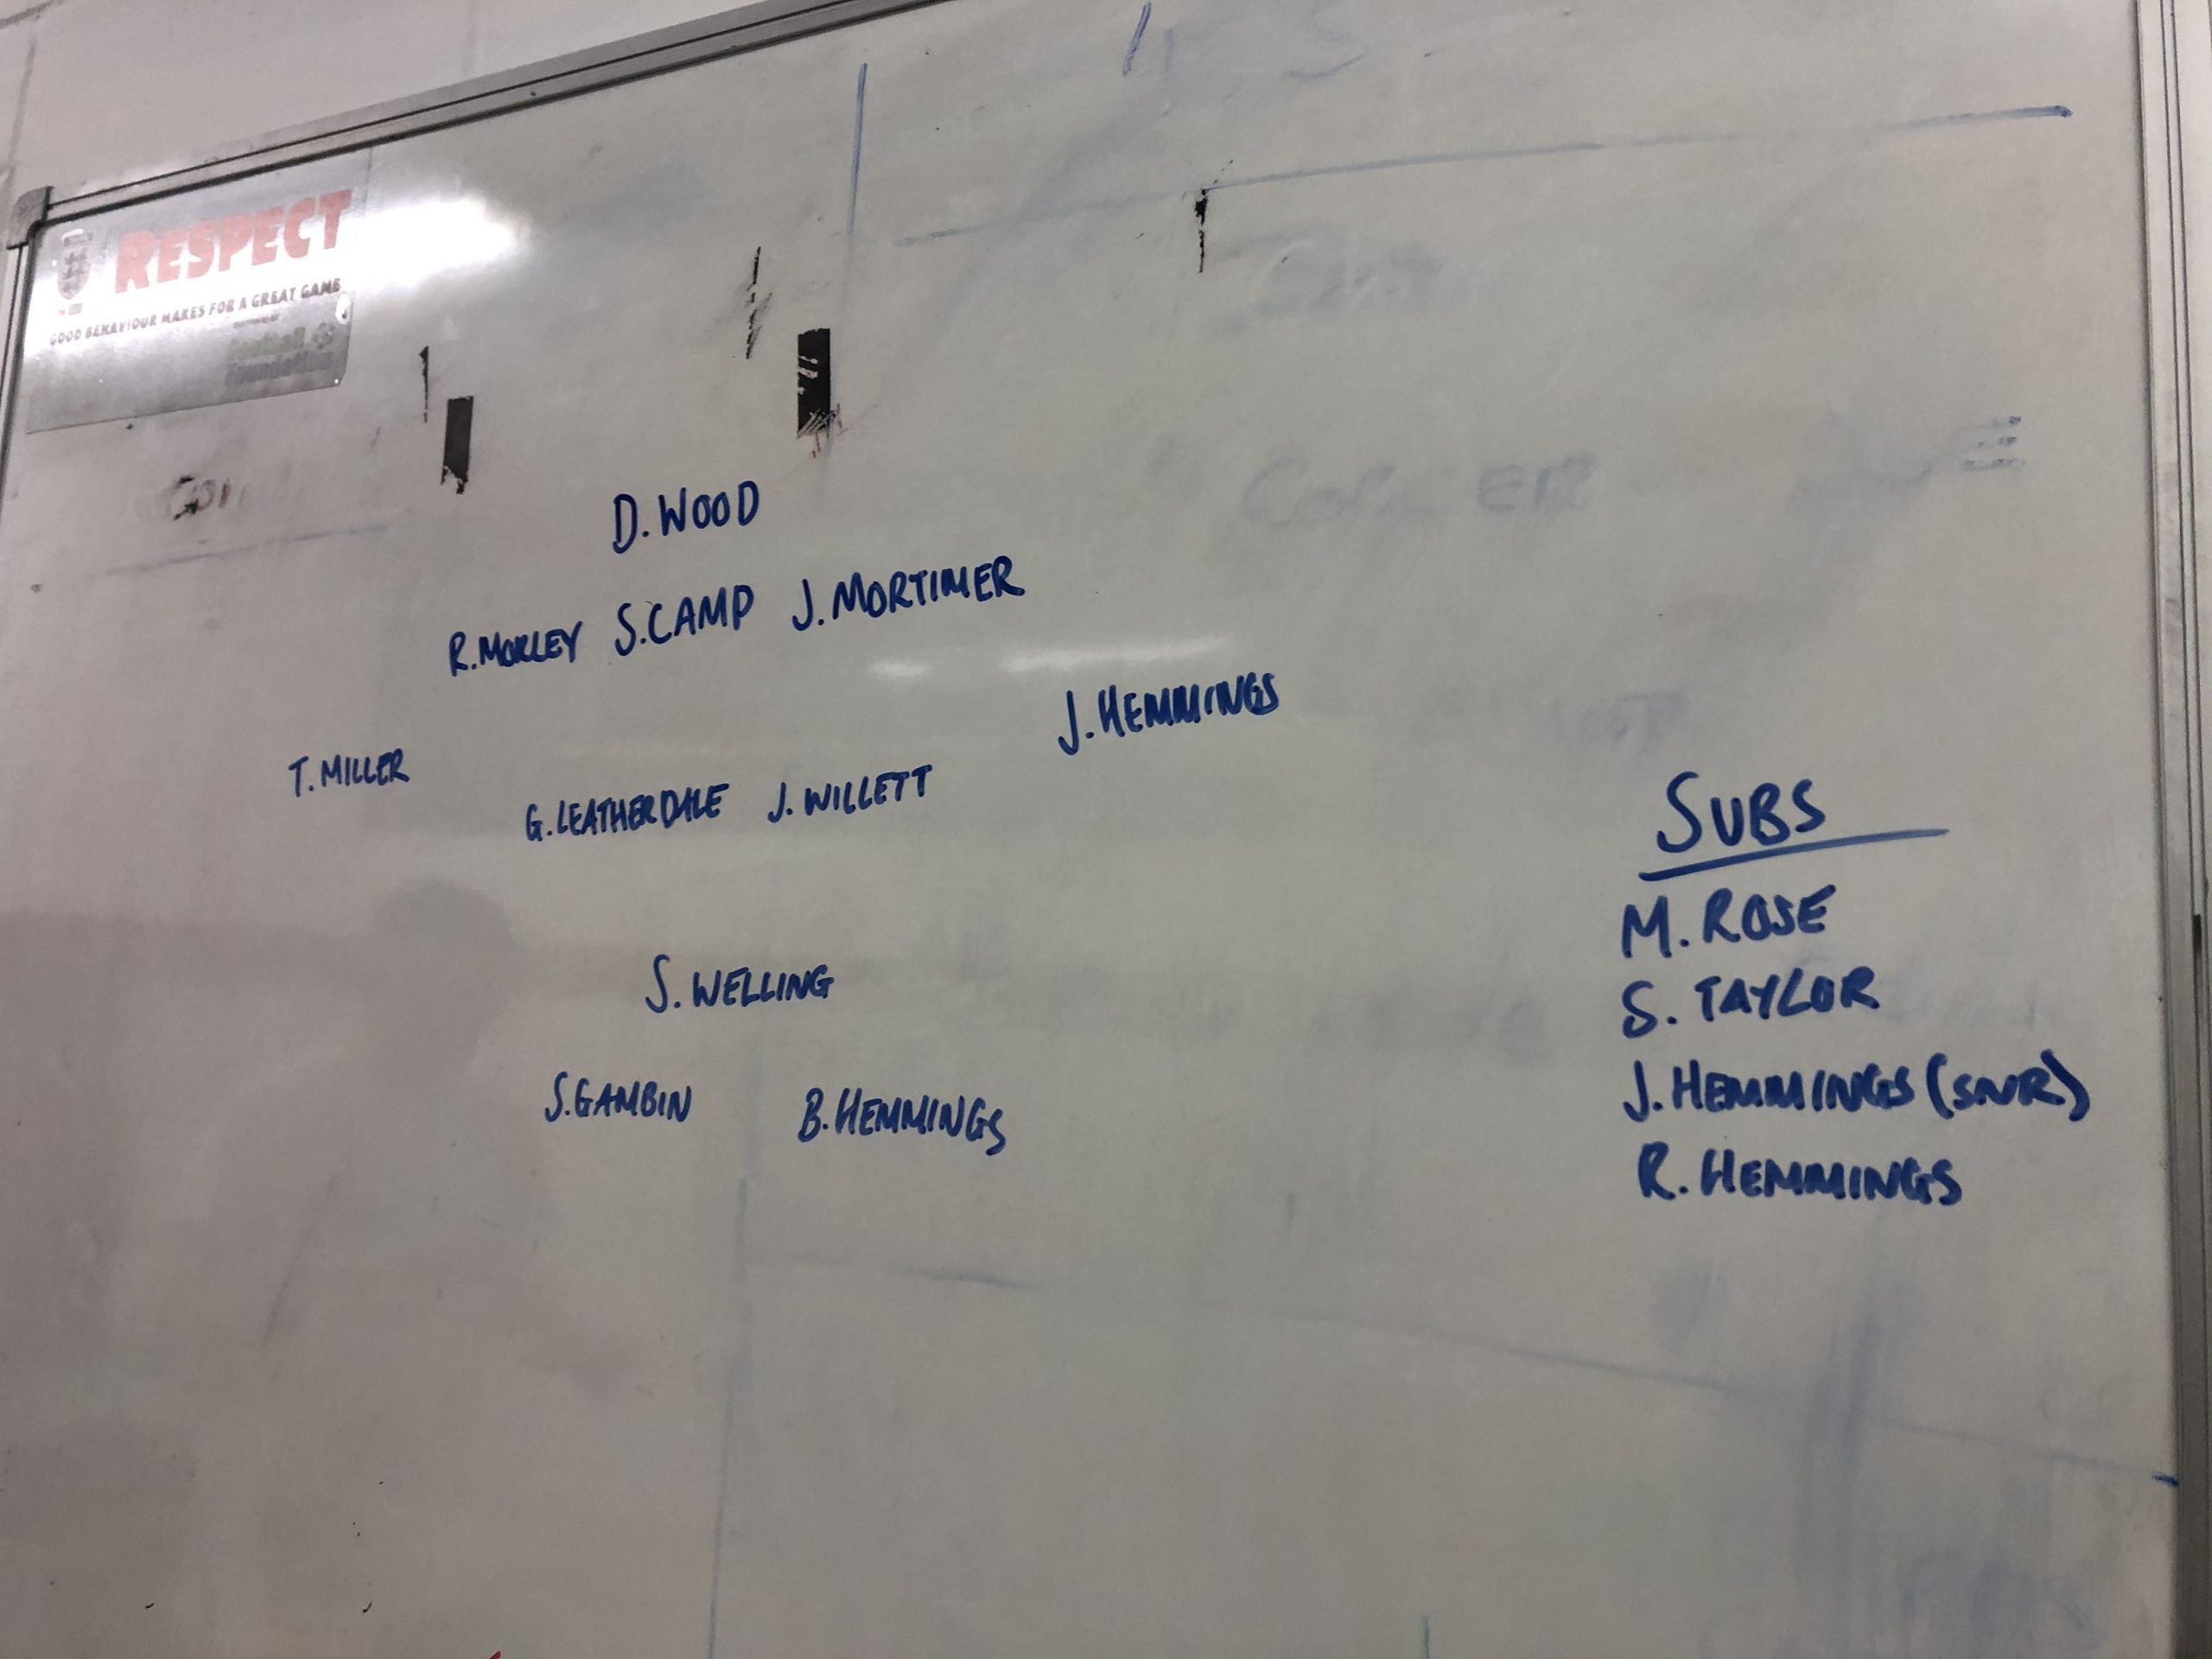 RESPECT
GOOD BEHAVIOUR MAKES FOR A GREAT GAME
D. WOOD
R. MORLEY S. CAMP J. MORTIMER
J. HEMMINGS
T. MILLER
G. LEATHERDALE J. WILLETT
S. WELLING
S. GAMBIN B. HEMMINGS
SUBS
M. ROSE
S. TAYLOR
J. HEMMINGS (SNR)
R. HEMMINGS